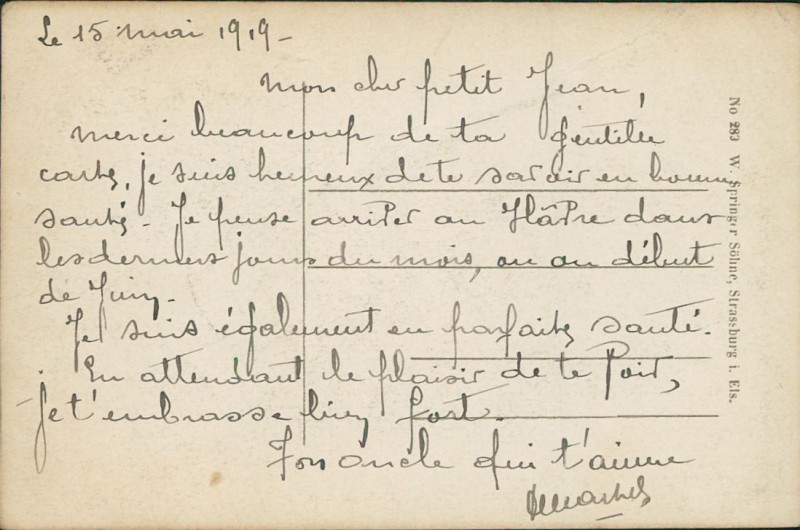 Le 15 mai 1919 -
Mon cher petit Jean,
Merci beaucoup de ta gentille
carte, je suis heureux de te savoir en bonne
santé - Je pense arriver au Hâvre dans
les derniers jours du mois, ou au début
de Juin -
Je suis également en parfaite santé.
En attendant le plaisir de te voir,
je t'embrasse bien fort.
Ton oncle qui t'aime
No 283 W. Springer Söhne, Strassburg i. Els.